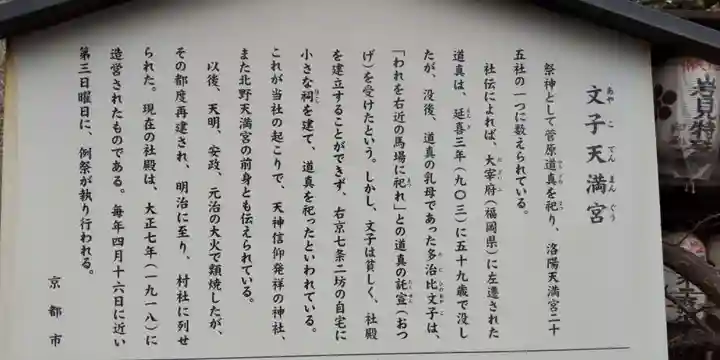 文子天満宮
あやこてんまんぐう
祭神として菅原道真を祀り、洛陽天満宮二十
五社の一つに数えられている。
社伝によれば、大宰府(福岡県)に左遷された
道真は、延喜三年(九〇三)に五十九歳で没し
たが、没後、道真の乳母であった多治比文子は、
「われを右近の馬場に祀れ」との道真の託宣(おつ
げ)を受けたという。しかし、文子は貧しく、社殿
を建立することができず、右京七条二坊の自宅に
小さな祠を建て、道真を祀ったといわれている。
これが当社の起こりで、天神信仰発祥の神社、
また北野天満宮の前身とも伝えられている。
以後、天明、安政、元治の大火で類焼したが、
その都度再建され、明治に至り、村社に列せ
られた。現在の社殿は、大正七年(一九一八)に
造営されたものである。毎年四月十六日に近い
第三日曜日に、例祭が執り行われる。
京都市
岩見特